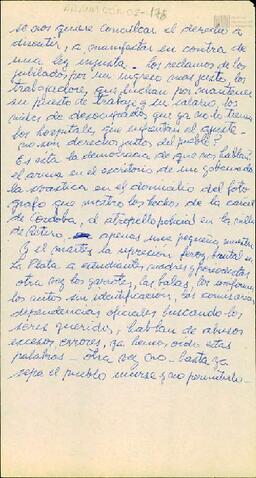 se nos quiere conculcar el derecho a
disentir, a manifestar en contra de
una ley injusta. Los reclamos de los
jubilados, por un ingreso más justo, los
trabajadores, que luchan por mantener
su puesto de trabajo y su salario, los
miles de desocupados que ya no lo tienen
los hospitales, que el ajuste -
no son derechos justos del pueblo?
Es esta la democracia de que nos hablan?
el arma en el escritorio de un gobernador
la svastica en el domicilio del foto
grafo que mostro los hechos de la carcel
de Cordoba, el atropello policial en la villa
de Retiro, apenas una pequeña muestra
Y el martes la represion feroz, brutal en
La Plata a estudiantes, madres y periodistas
otra vez los garrotes, las balas, los uniformes
los autos sin identificacion, las comisarias
dependencias oficiales buscando los
seres queridos, hablan de abusos
excesos, errores, ya hemos oido estas
palabras - otra vez no - basta ya
sepa el pueblo unirse y no permitirlo -